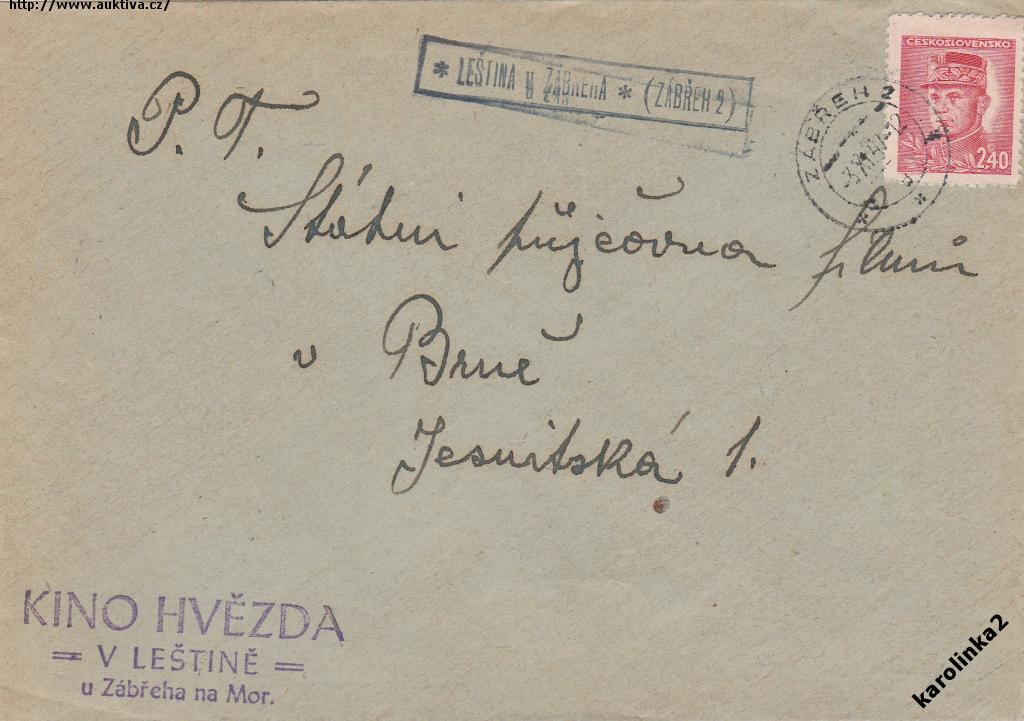 http://www.auktiva.cz/
* LEŠTINA U ZÁBŘEHA * (ZÁBŘEH 2)
ČESKOSLOVENSKO
2.40
ZÁBŘEH 2
P. T.
Státní půjčovna filmů
v Brně
Jesuitská 1.
KINO HVĚZDA
= V LEŠTINĚ =
u Zábřeha na Mor.
karolinka2